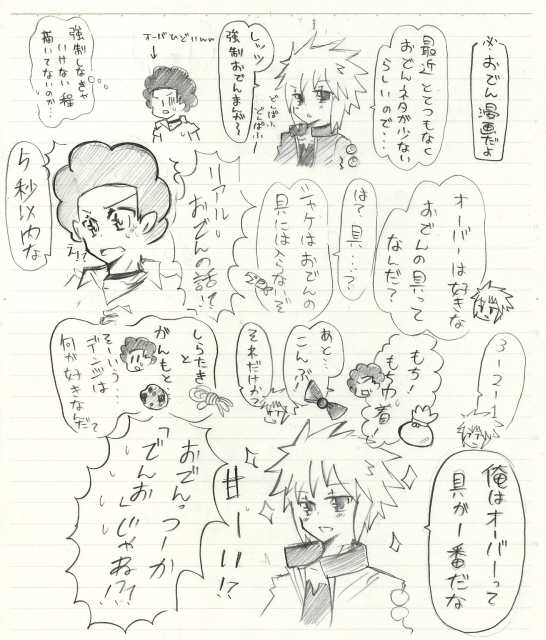 ※おでん漫画だよ
最近とてつもなく
おでんネタが少ない
らしいので…
しッッ
強制おでんまんが〜
どんぱふ
どんぱふー
オーバひどいww
強制しなきゃ
いけない程
描いてないのか…
オーバーは好きな
おでんの具って
なんだ?
は?具…?
シャケはおでんの
具には入らないぞ
リアル
おでんの話!?
え!?
5秒以内な
3-2-1
もち!
もち巾着
あと…
こんぶ
それだけか?
しらたき
と
がんもと
そーいう…
デンヅは
何が好きなんだ?
俺はオーバーって
具が一番だな
甘ーい!?
おでんっつーか
「でんお」じゃね!?